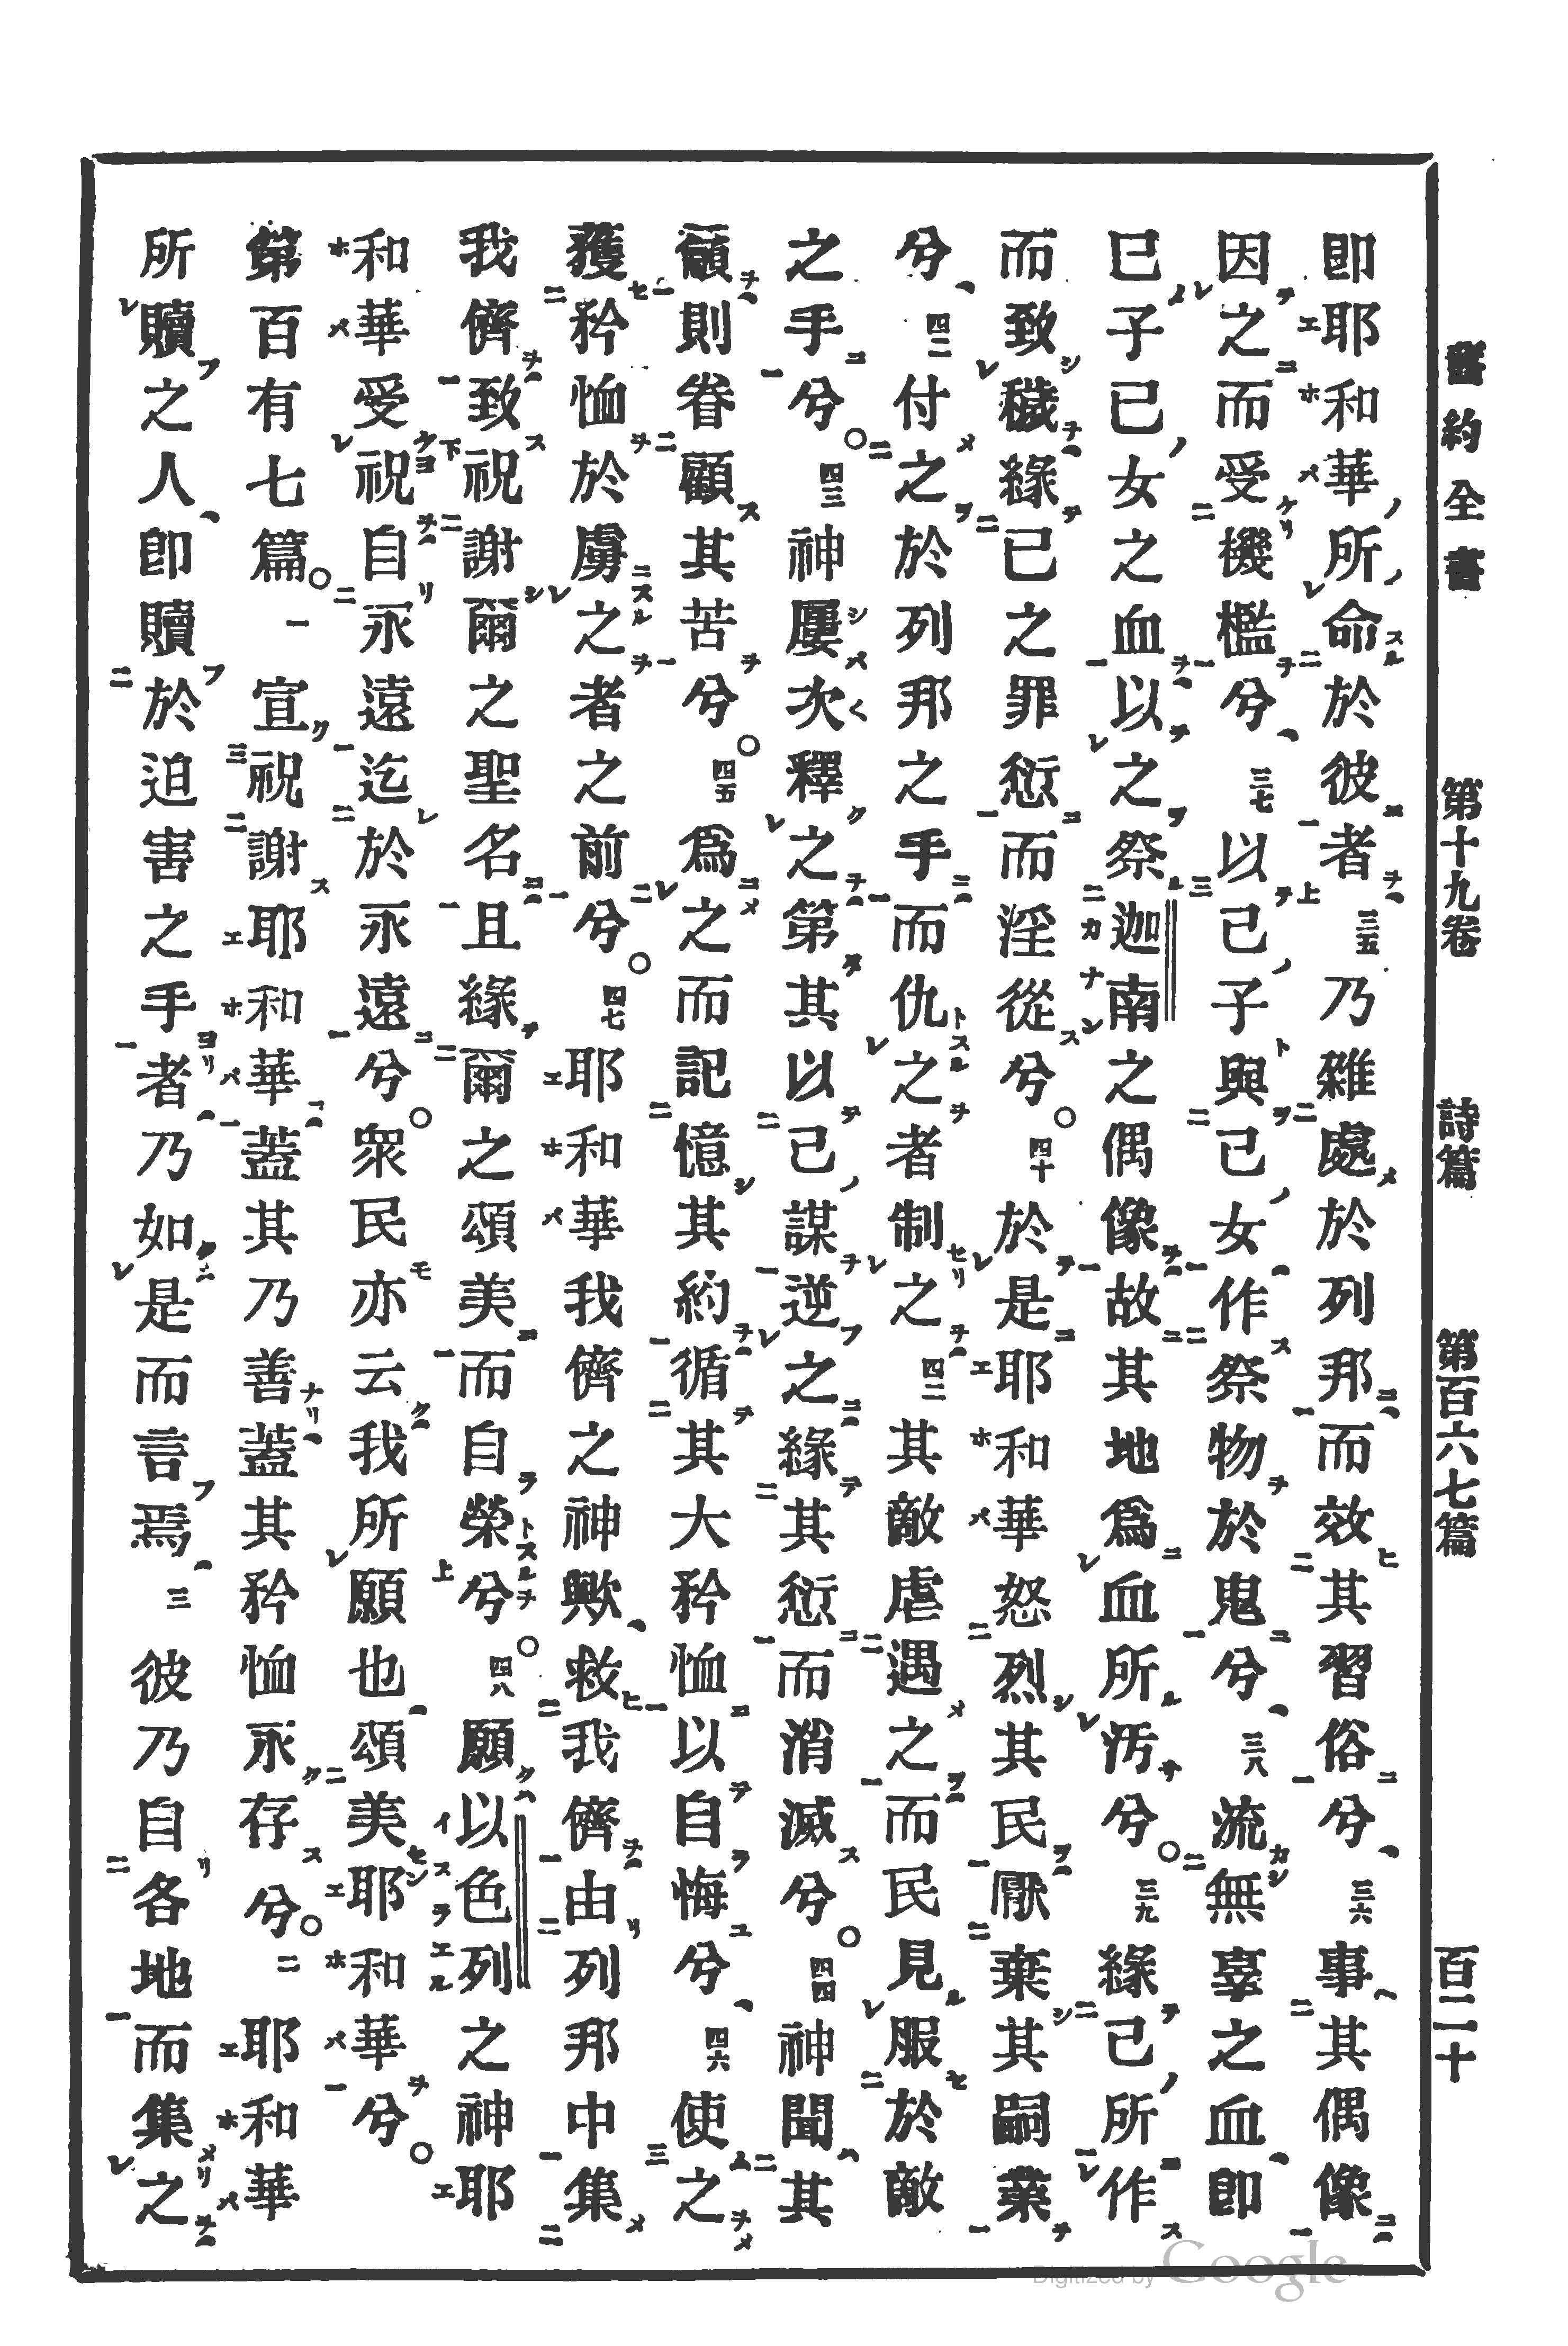 舊約全書 第十九卷 詩篇 第百六七篇 百二十
即耶和華所命於彼者三五乃雜處於列邦而效其習俗兮三六事其偶像
因之而受機檻兮三七以己子與己女作祭物於鬼兮三八流無辜之血即
己子己女之血以之祭迦南之偶像故其地爲血所汚兮○三九緣己所作
而致穢緣己之罪愆而淫從兮○四十於是耶和華怒烈其民厭棄其嗣業
兮四一付之於列邦之手而仇之者制之四二其敵虐遇之而民見服於敵
之手兮○四三神屢次釋之第其以己謀逆之緣其愆而消滅兮○四四神聞其
籲則眷顧其苦兮○四五爲之而記憶其約循其大矜恤以自悔兮四六使之
獲矜恤於虜之者之前兮○四七耶和華我儕之神歟救我儕由列邦中集
我儕致祝謝爾之聖名且緣爾之頌美而自榮兮○四八願以色列之神耶
和華受祝自永遠迄於永遠兮○衆民亦云我所願也頌美耶和華兮○
第百有七篇○一宣祝謝耶和華蓋其乃善蓋其矜恤永存兮○二耶和華
所贖之人即贖於迫害之手者乃如是而言焉三彼乃自各地而集之
Digitized by Google